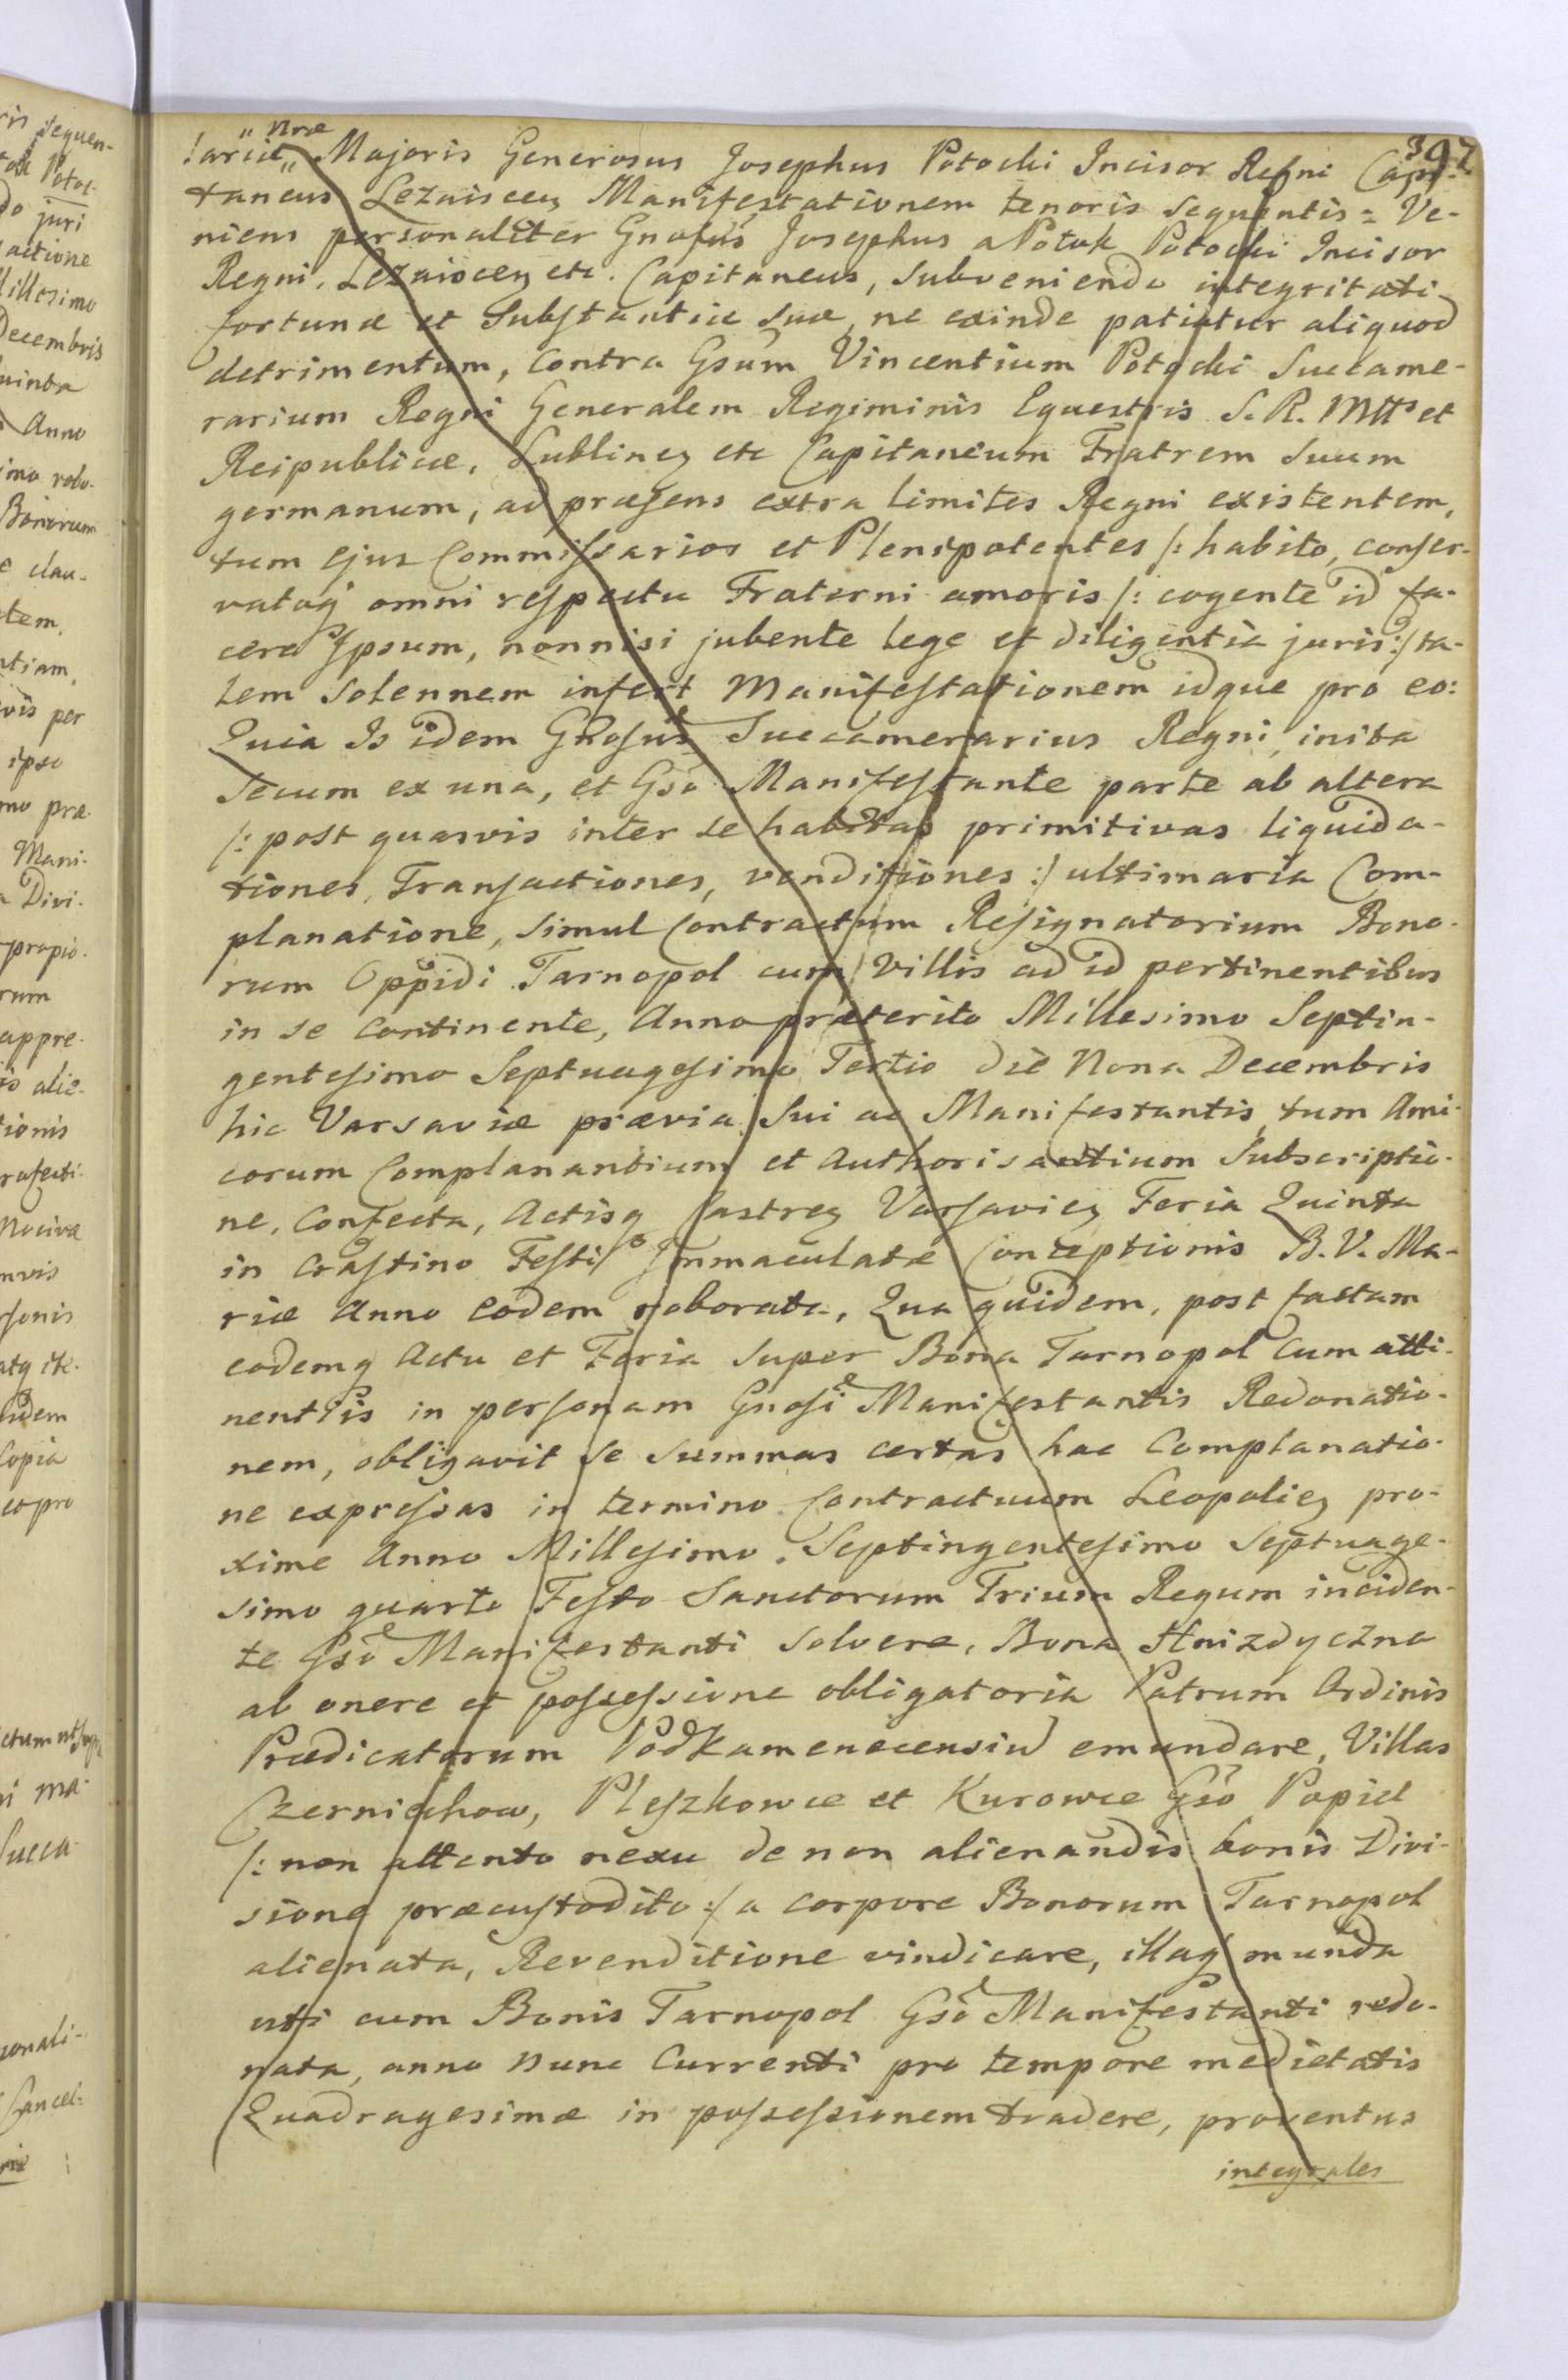 397
lariæ „ nræ Majoris Generosus Josephus Potocki Incisor Regni Capi-
taneus Lezaiscen Manifestationem tenoris sequentis = Ve-
niens personaliter Gnosus Josephus a Potok Potocki Incisor
Regni, Lezaiscen etc. Capitaneus, subveniendo integritati
fortunæ et Substantiæ suæ, ne exinde patiatur aliquod
detrimentum, Contra Gsum Vincentium Potocki Succame-
rarium Regni Generalem Regiminis Equestris S. R. Mttis et
Reipublicæ, Lublinen etc Capitaneum Fratrem Suum
germanum, ad præsens extra limites Regni existentem,
tum ejus Commissarios et Plenipotentes /: habito, conser-
vatoq omni respectu Fraterni amoris /: cogente id fa-
cere Ipsum, nonnisi jubente lege et diligentia juris :/ ta-
lem Solennem infert Manifestationem idque pro eo:
Quia Is idem Gnosus Succamerarius Regni, inita
Secum ex una, et Gso Manifestante parte ab altera
/: post quasvis inter se habitas primitivas liquida-
tiones, Transactiones, venditiones :/ ultimaria Com-
planatione, simul Contractum Resignatorium Bono-
rum Oppidi Tarnopol cum Villis ad id pertinentibus
in se Continente, Anno præterito Millesimo Septin-
gentesimo Septuagesimo Tertio die Nona Decembris
hic Varsaviæ prævia Sui ac Manifestantis, tum Ami-
corum Complanantium et Authorisantium Subscriptio-
ne, Confecta, Actisq Castren Varsavien Feria Quinta
in Crastino Festi Immaculatæ Conceptionis B. V. Ma-
riæ Anno eodem roborata, Qua quidem, post factam
eodemq Actu et Feria super Bona Tarnopol Cum atti-
nentiis in personam Gnosi Manifestantis Redonatio-
nem, obligavit se summas certas hac Complanatio-
ne expressas in termino Contractuum Leopolien pro-
xime Anno Millesimo Septingentesimo Septuage-
simo quarto Festo Sanctorum Trium Regum inciden-
te Gso Manifestanti Solvere, Bona Hnizdyczna
ab onere et possessione obligatoria Patrum Ordinis
Prædicatorum Podkamenecensiu emundare, Villas
Czernichow, Pleszkowce et Kurowce Gso Papiel
/: non attento nexu de non alienandis bonis Divi-
sione præcustodito :/ a corpore Bonorum Tarnopol
alienata, Revenditione vindicare, illaq munda
uti cum Bonis Tarnopol Gso Manifestanti redo-
nata, anno nunc Currenti pro tempore medietatis
Quadragesimæ in possessionem tradere, proventus
integrales